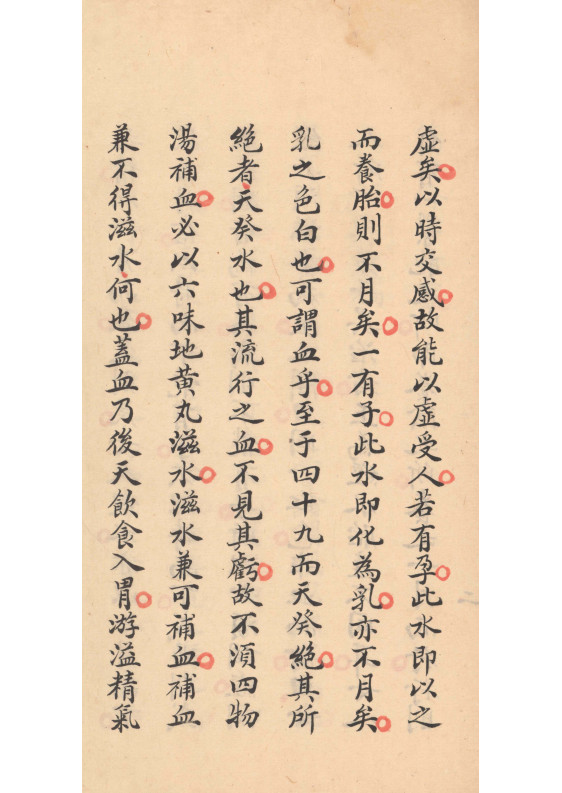 虛矣以時交感故能以虛受人若有孕此水即以之
而養胎則不月矣一有子此水即化為乳亦不月矣
乳之色白也可謂血乎至于四十九而天癸絕其所
絕者天癸水也其流行之血不見其虧故不須四物
湯補血必以六味地黄丸滋水滋水兼可補血補血
兼不得滋水何也蓋血乃後天飲食入胃游溢精氣